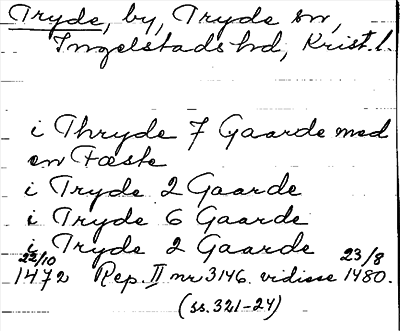 Tryde, by, Tryde sn,
Ingelstads hd, Krist. l.
i Thryde 7 Gaarde med
en Fæste
i Tryde 2 Gaarde
i Tryde 6 Gaarde
i Tryde 2 Gaarde
22/10 23/8
1472 Rep. II nr 3146. vidisse 1480.
(ss. 321-24)